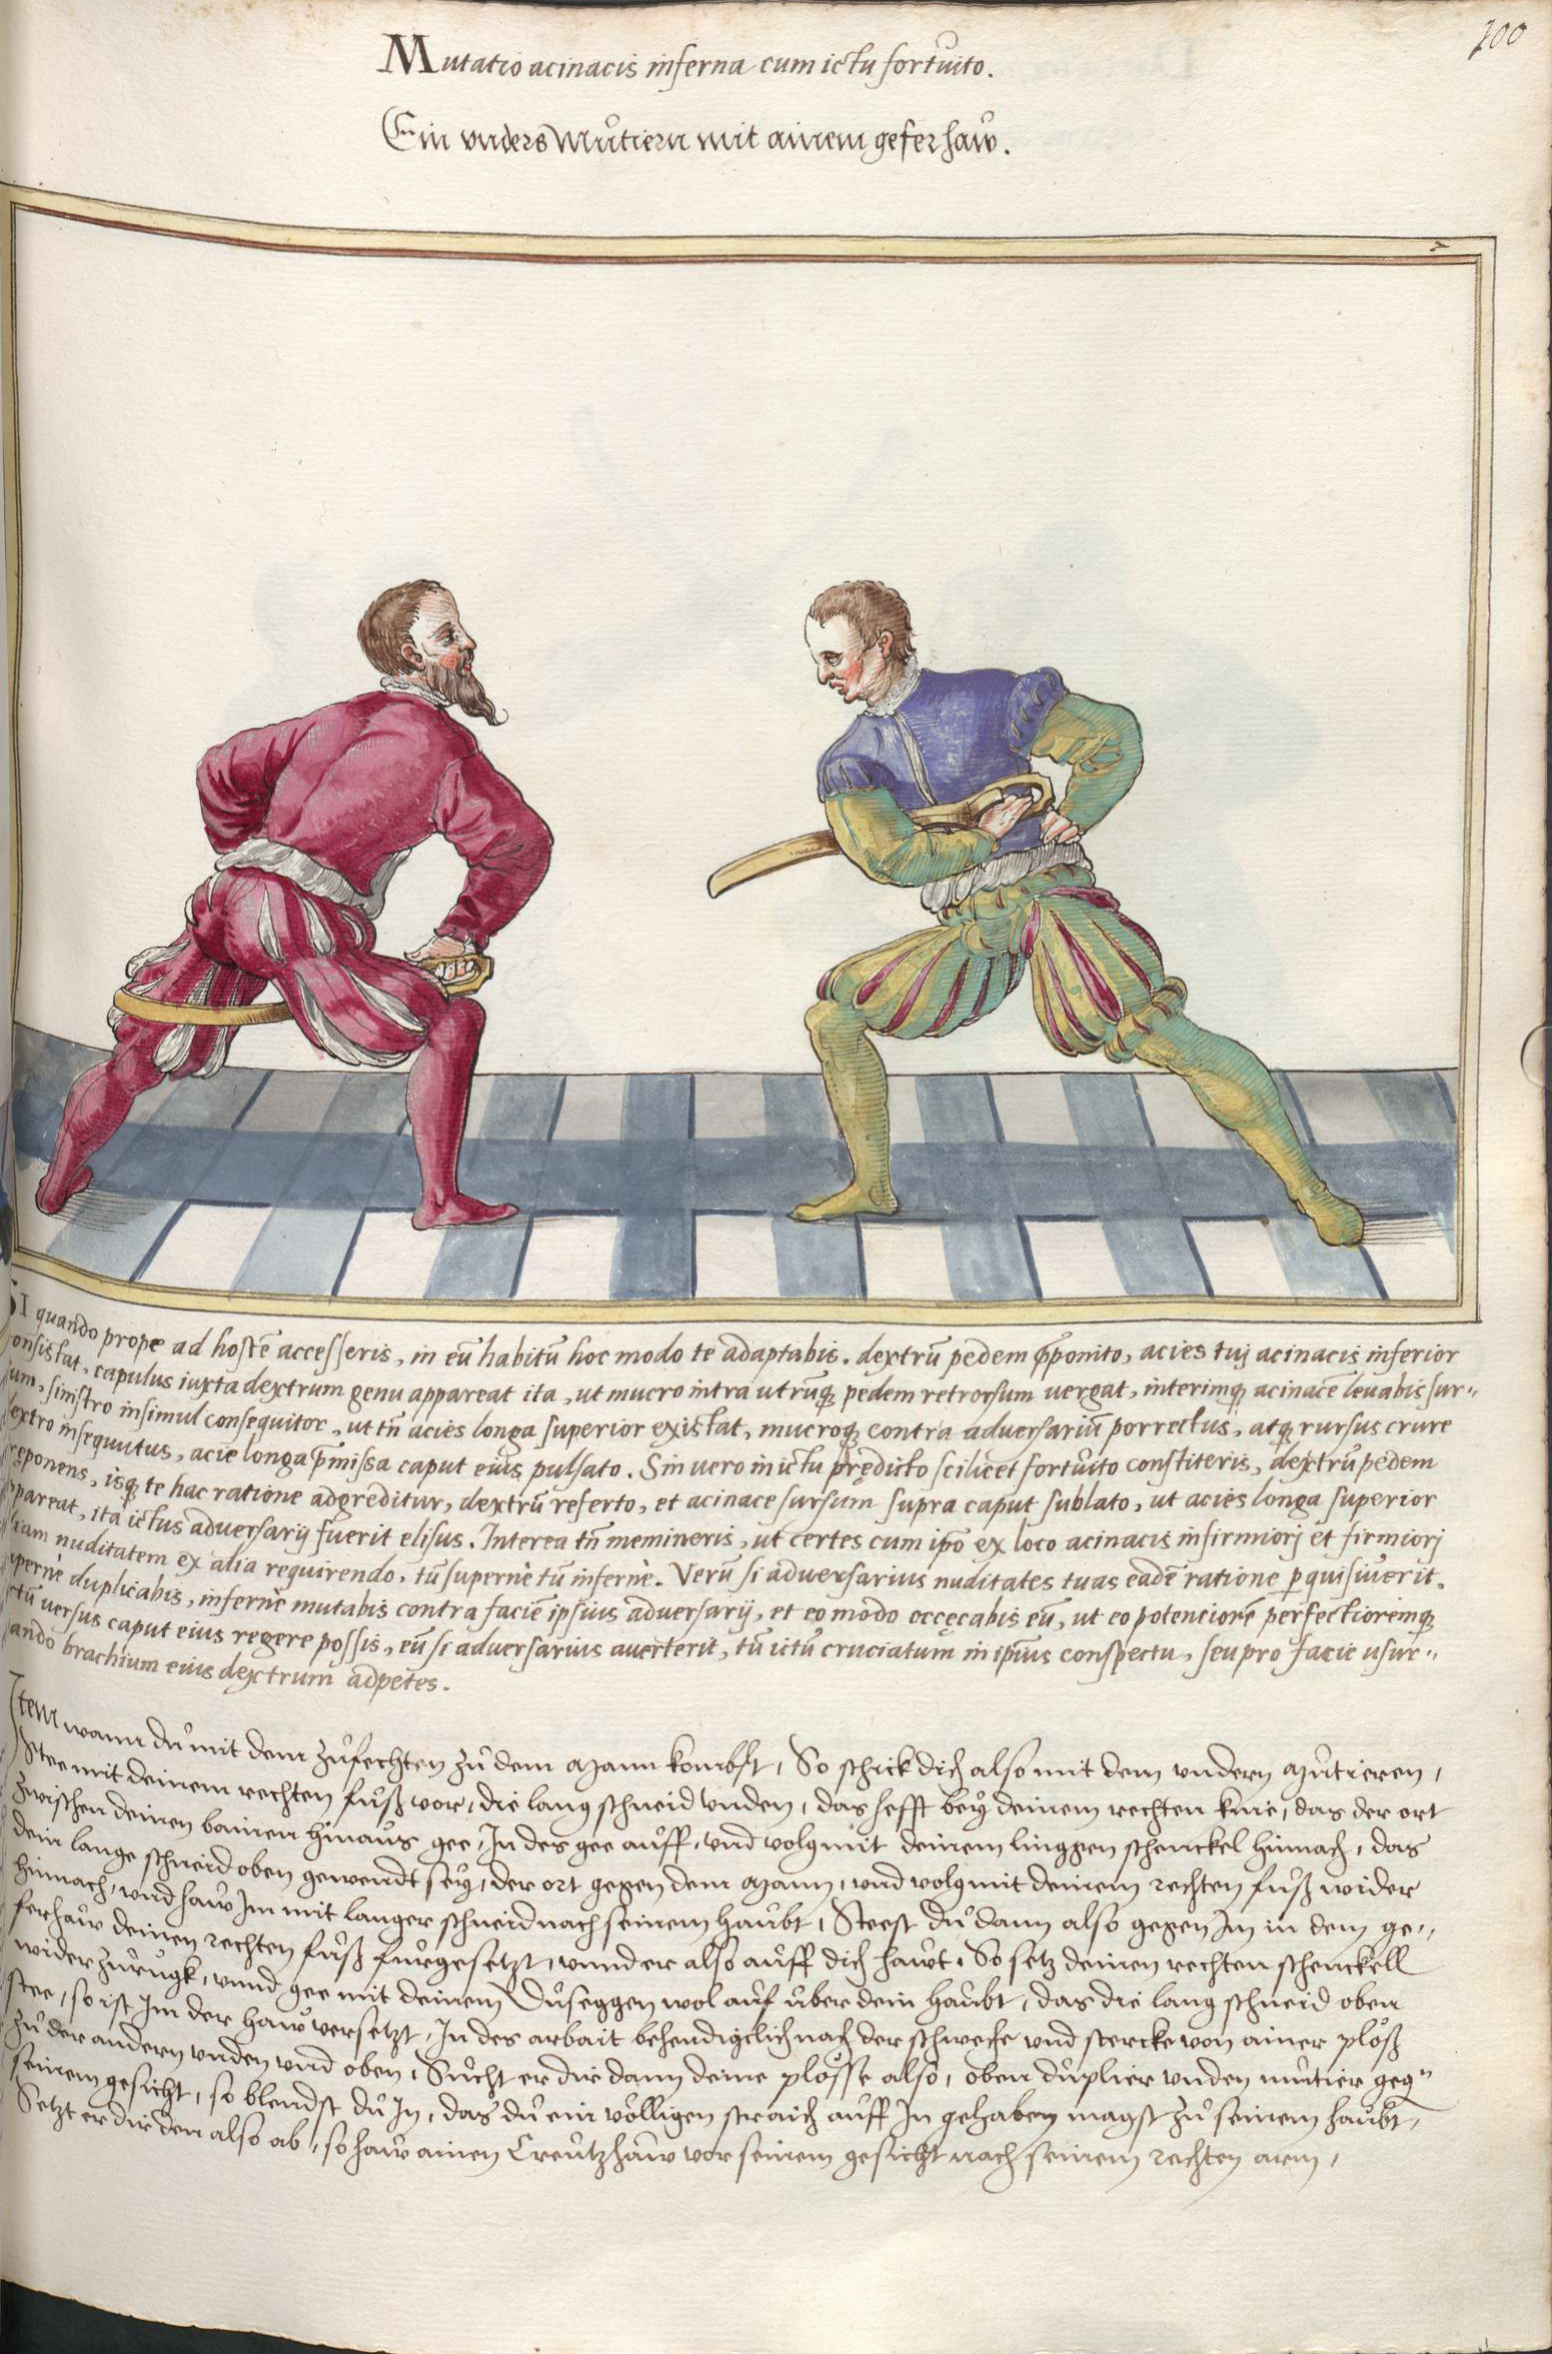 100
Mutatio acinacis inferna cum ictu fortůito.
Ein vnders Můtiern mit ainem gefer haw.
SI quando prope ad hostē accesseris, in eū habitū hoc modo te adaptabis. dextrū pedem p̄ponito, acies tuj acinacis inferior
onsistat, capulus iuxta dextrum genu appareat ita, ut mucro intra utrūq; pedem retrorsum vergat, interimq; acinacē levabis sur-
um, sinistro insimul consequitor, ut tn̄ acies longa superior existat, mucroq; contra adversariū porrectus, atq; rursus crure
extro insequutus, acie longa p̄missa caput eius pulsato. Sin vero in ictu prędicto scilicet fortůito constiteris, dextrů pedem
eponens, isq; te hac ratione adgreditur, dextrū referto, et acinace sursum supra caput sublato, ut acies longa superior
ppareat, ita ictus adversarij fuerit elisus. Interea tn̄ memineris, ut certes cum ipō ex loco acinacis infirmiorj et firmiorj
nam nuditatem ex alia requirendo, tū supernè tū infernè. Verū si adversarius nuditates tuas eādē ratione p quisiůerit.
upernè duplicabis, infernè mutabis contra faciē ipsius adversarij, et eo modo occęcabis eū, ut eo potentiorē perfectioremq;
ctū versus caput eius regere possis, eū si adversarius averterit, tū ictū cruciatum in ipīus conspectu, seu pro facie usur-
ando brachium eius dextrum adpetes.
Item wann dů mit dem zůfechten zů dem Mann kombst, So schick dich also mit dem vndern Můtieren,
Stee mit deinem rechten fůß vor, die lang schneid vnden, das hefft bey deinem rechten knie, das der ort
zwischen deinen bainen hinaus gee, In des gee aůff, vnd volg mit deinem linggen schenckel hinnach, das
dein lange schneid oben gewendt sey, der ort gegen dem Mann, vnd volg mit deinem rechten fůß wider
hinnach, vnd haw Im mit langer schneid nach seinem haůbt, Steest dů dann also gegen Im in dem ge-
ferhaw deinen rechten fůß fůrgesetzt, vnnd er also aůff dich hawt, So setz deinen rechten schenckell
wider zůrugk, vnnd gee mit deinem Důseggen wol auf ůber dein haůbt, das die lang schneid oben
stee, so ist Im der haw versetzt, In des arbait behendigelich nach der schweche vnd stercke von ainer plöß
zů der andern vnden vnd oben, Sůcht er dir dann deine plösse also, oben důplier vnden mutier geg"
seinem gesicht, so blendst dů In, das dů ein völligen straich aůff In gehaben magst zů seinem haůbt,
Setzt er dir den also ab, so haw ainen Creůtzhaw vor seinem gesicht nach seinem rechten arm,